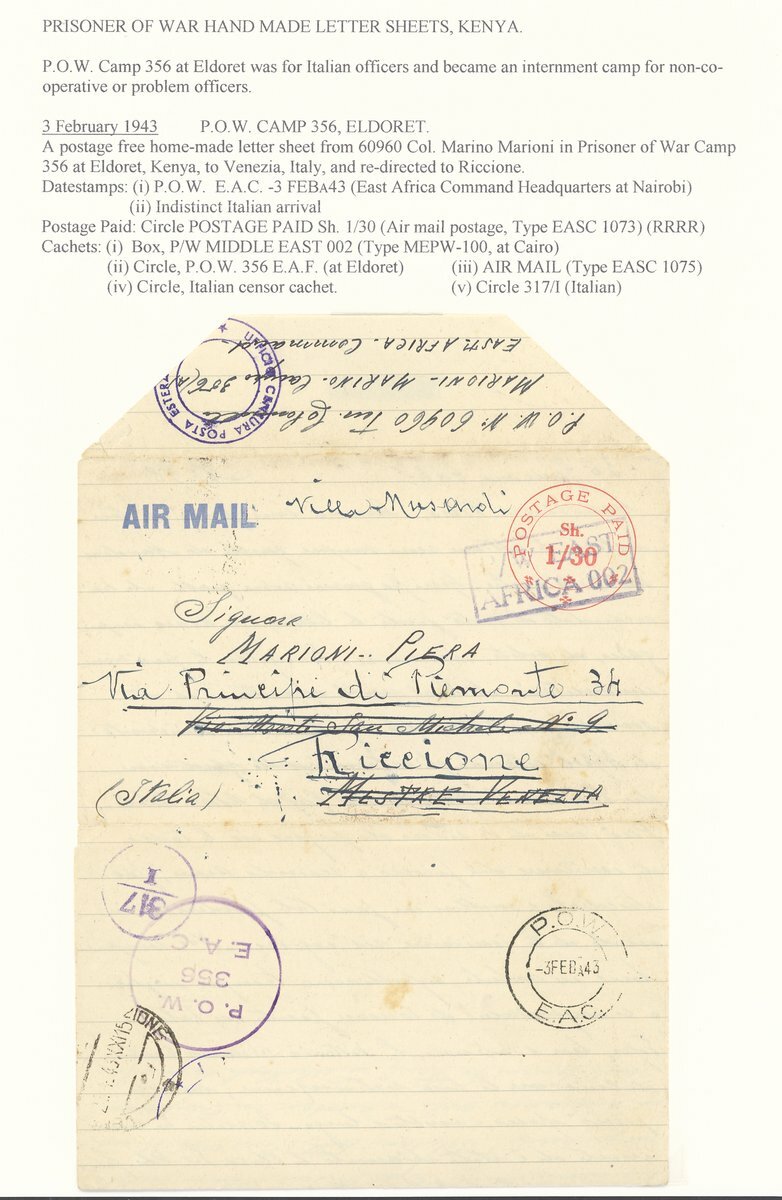 PRISONER OF WAR HAND MADE LETTER SHEETS, KENYA.
P.O.W. Camp 356 at Eldoret was for Italian officers and became an internment camp for non-co-
operative or problem officers.
3 February 1943 P.O.W. CAMP 356, ELDORET.
A postage free home-made letter sheet from 60960 Col. Marino Marioni in Prisoner of War Camp
356 at Eldoret, Kenya, to Venezia, Italy, and re-directed to Riccione.
Datestamps: (i) P.O.W. E.A.C. -3 FEBA43 (East Africa Command Headquarters at Nairobi)
(ii) Indistinct Italian arrival
Postage Paid: Circle POSTAGE PAID Sh. 1/30 (Air mail postage, Type EASC 1073) (RRRR)
Cachets: (i) Box, P/W MIDDLE EAST 002 (Type MEPW-100, at Cairo)
(ii) Circle, P.O.W. 356 E.A.F. (at Eldoret) (iii) AIR MAIL (Type EASC 1075)
(iv) Circle, Italian censor cachet. (v) Circle 317/I (Italian)
P.O.W. N. 60960 Ten. Colonnello
MARIONI - MARINO. Campo 356
EAST. AFRICA. Command
UFFICIO CENSURA POSTA ESTERA
AIR MAIL
Villa
POSTAGE PAID
Sh.
1/30
P/W EAST
AFRICA 002
Signora
MARIONI - PIERA
Via Principi di Piemonte 34
Via Monte San Michele N° 9
Riccione
(Italia)
MESTRE - VENEZIA
317
I
P.O.W.
356
E.A.C.
P.O.W.
-3FEBA43
E.A.C.